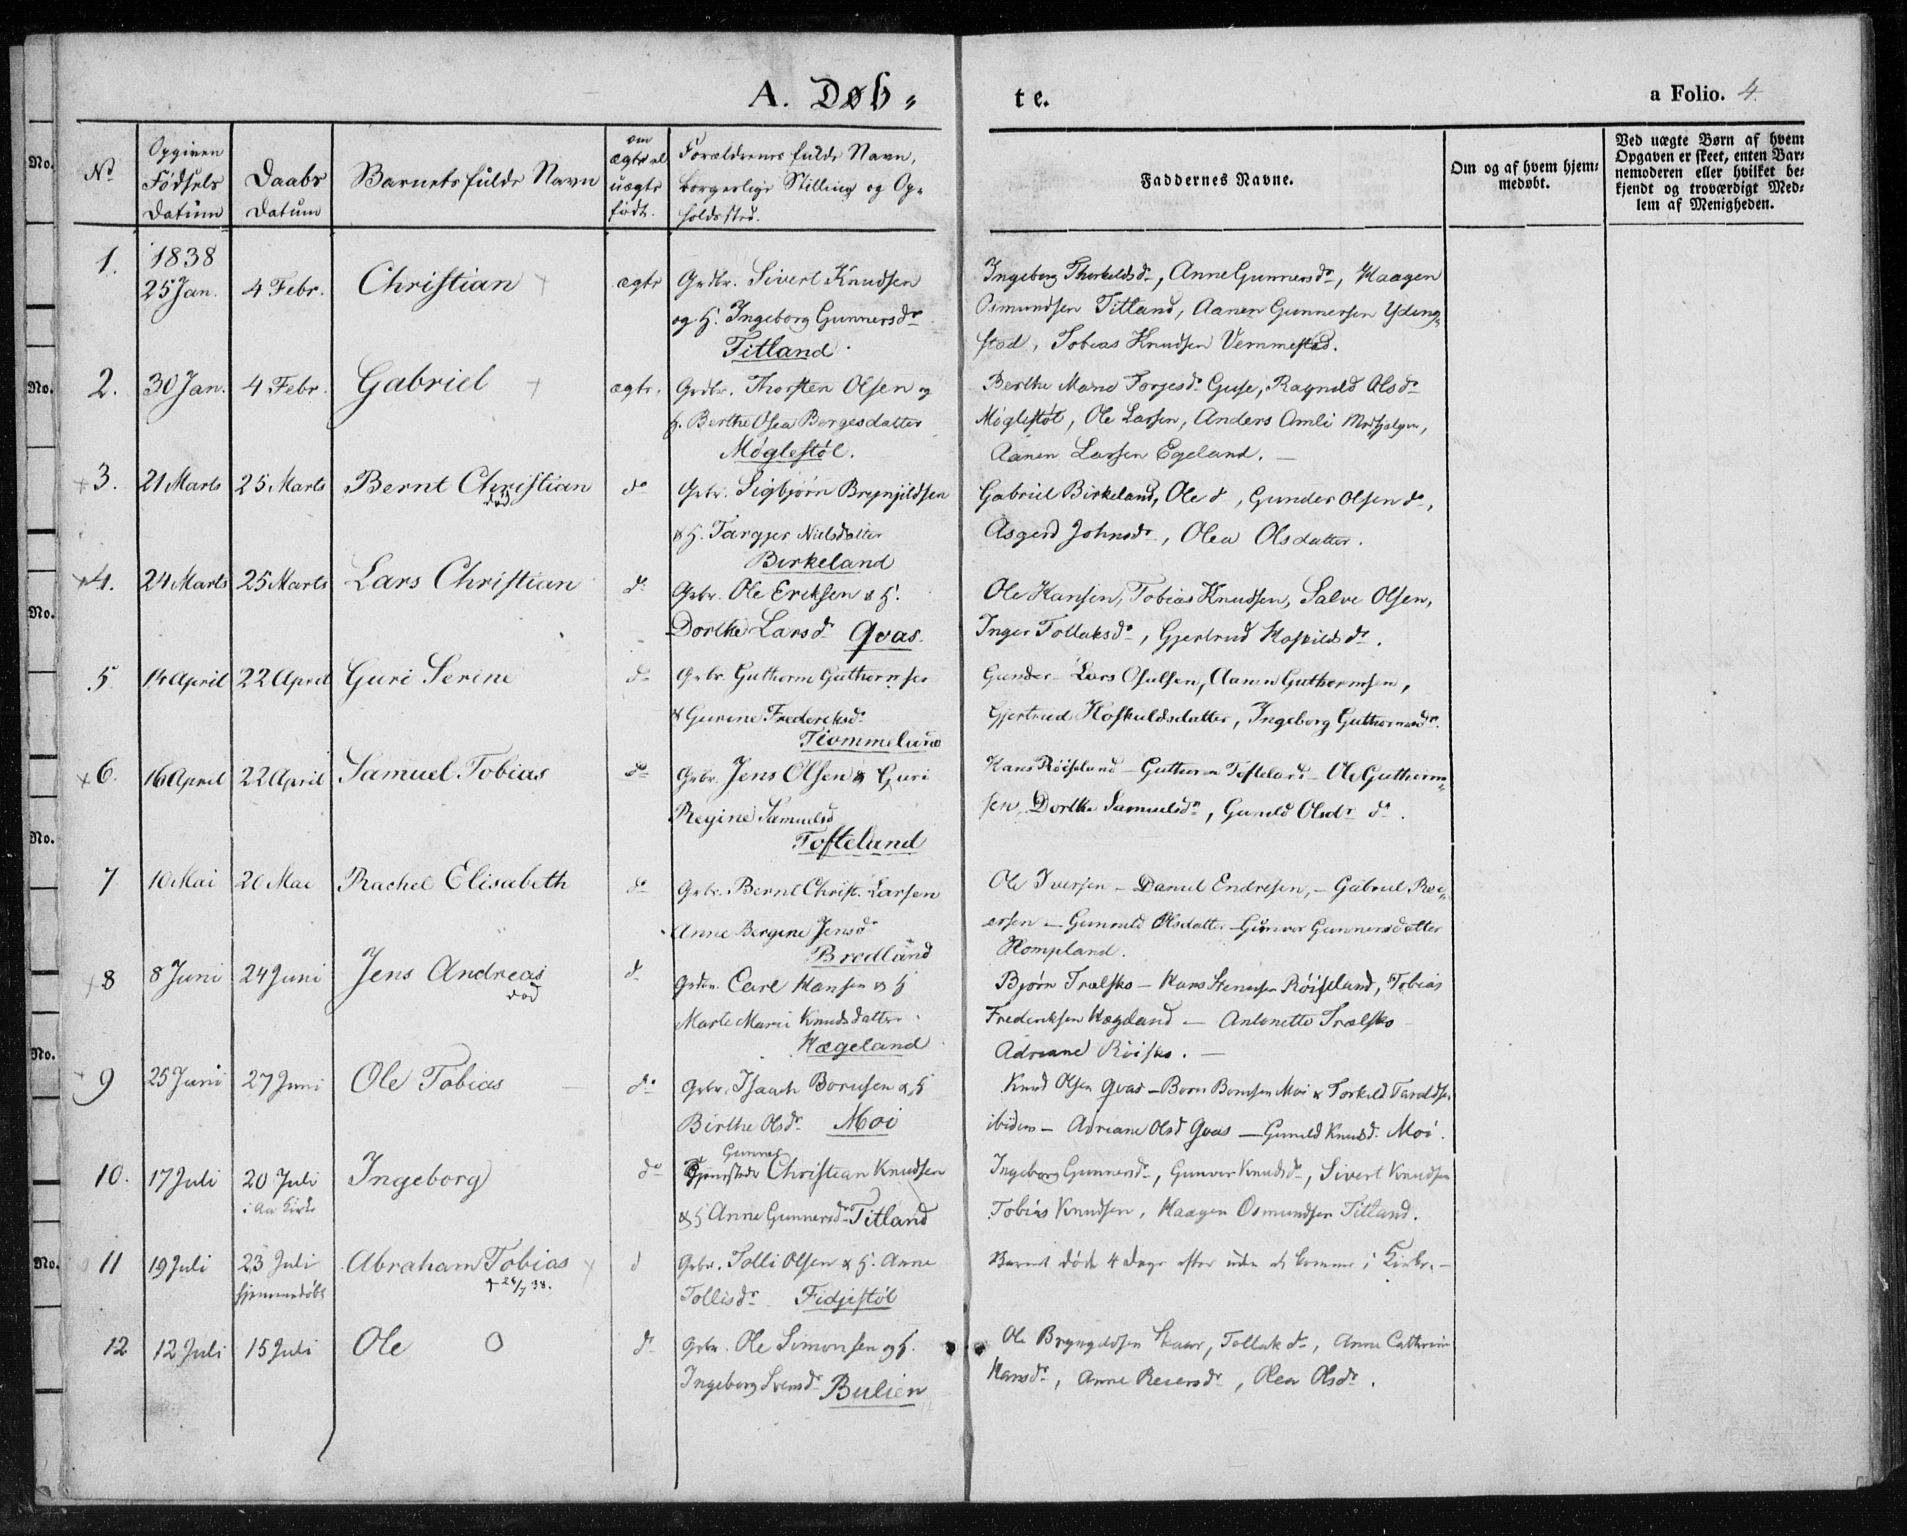 A. Døb-
te.
a Folio. 4.
No
Opgiven Fødsels Datum
Daabs Datum
Barnets fulde Navn
om ægte el uægte født.
Forældrenes fulde Navn, borgerlige Stilling og Opholdssted.
Faddernes Navne.
Om og af hvem hjemmedøbt.
Ved uægte Børn af hvem Opgaven er skeet, enten Barnemoderen eller hvilket bekjendt og troværdigt Medlem af Menigheden.
1. 1838 25 Jan. 4 Febr. Christian ægte Grdbr. Sivert Knudsen
og H. Ingeborg Gunnersdr
Titland.
Ingeborg Thorkeldsdr, Anne Gunnersdr, Haagen
Osmundsen Titland, Aanen Gunnersen Ydeng-
stad, Tobias Knudsen Vemmestad.
2. 30 Jan. 4 Febr. Gabriel ægte. Grdbr. Thorsten Olsen og
H. Berthe Olea Borgesdatter
Møglestøl.
Berthe Marie Torgesdr Guse, Ragnild Olsdr
Møglestøl, Ole Larsen, Anders Omli,
Aanen Larsen Egeland.
3. 21 Marts 25 Marts Bernt Christian do Grbr. Sigbjørn Brynjildsen
død
& H. Targjer Nielsdatter
Birkeland
Gabriel Birkeland, Ole do, Gunder Olsen do,
Asgerd Johnsdr, Olea Olsdatter.
4. 24 Marts 25 Marts Lars Christian do Grbr. Ole Eriksen & H.
Dorthe Larsdr Qvas.
Ole Hansen, Tobias Knudsen, Salve Olsen,
Inger Tollaksdr, Gjertrud Hoskilds dr.
5 14 April 22 April Guri Serine do Grbr. Guthorm Guthormsen
& Gurine Frederiksdr
Tiommelund
Gunder - Lars Osulsen, Aanen Guthormsen,
Gjertrud Hoskuldsdatter, Ingeborg Guthormsdr.
6. 16 April 22 April Samuel Tobias do Grbr. Jens Olsen & Guri
Regine Samuelsd
Tofteland
Hans Røiseland - Guthorm Tofteland - Ole Guthorm-
sen, Dorthe Samuelsdr, Gunild Olsdr do.
7 10 Mai 20 Mai Rachel Elisabeth do Grbr. Bernt Christ. Larsen
Anne Bergine Jensdr
Bredland
Ole Iversen - Daniel Endresen, - Gabriel Rei-
ersen - Gunvald Olsdatter - Gunvor Gunnersdatter
Hompland.
8 8 Juni 24 Juni Jens Andreas do Grdbr. Carl Hansen & H
død
Marte Marie Knudsdatter
Hægeland
Bjørn Trælsko - Hans Stensen Røiseland, Tobias
Frederiksen Hægeland - Antonette Trælsko -
Adriane Røisko.
9 25 Juni 27 Juni Ole Tobias do Grbr. Isaach Bornsen & H
Birthe Olsdr Moi
Knud Olsen Qvas - Born Bornsen Moi & Torkild Taraldsen
ibidem - Adriane Olsd Qvas - Gunild Knudsd. Moi.
10. 17 Juli 20 Juli Ingeborg do Tjenestede Gunner Christian Knudsen
i Aa Kirke
& H Anne Gunnersdr Titland
Ingeborg Gunnersdr, Gunvor Knudsdr, Sivert Knudsen
Tobias Knudsen, Haagen Osmundsen Titland.
11 19 Juli 23 Juli Abraham Tobias d Grbr. Tolli Olsen & H. Anne
hjemmedøbt † 26/7 38.
Tollisdr Fidjestøl
Barnet døde 4 Dage efter uden at komme i Kirke. -
12 12 Juli 15 Juli Ole O do Grbr. Ole Simonsen og H.
Ingeborg Svensdr Bulien
Ole Bryngeldsen Skaar, Tollak do, Anne Cathrine
Hansdr, Anne Reiersdr, Olea Olsdr.
No.
No.
No.
No.
No.
No.